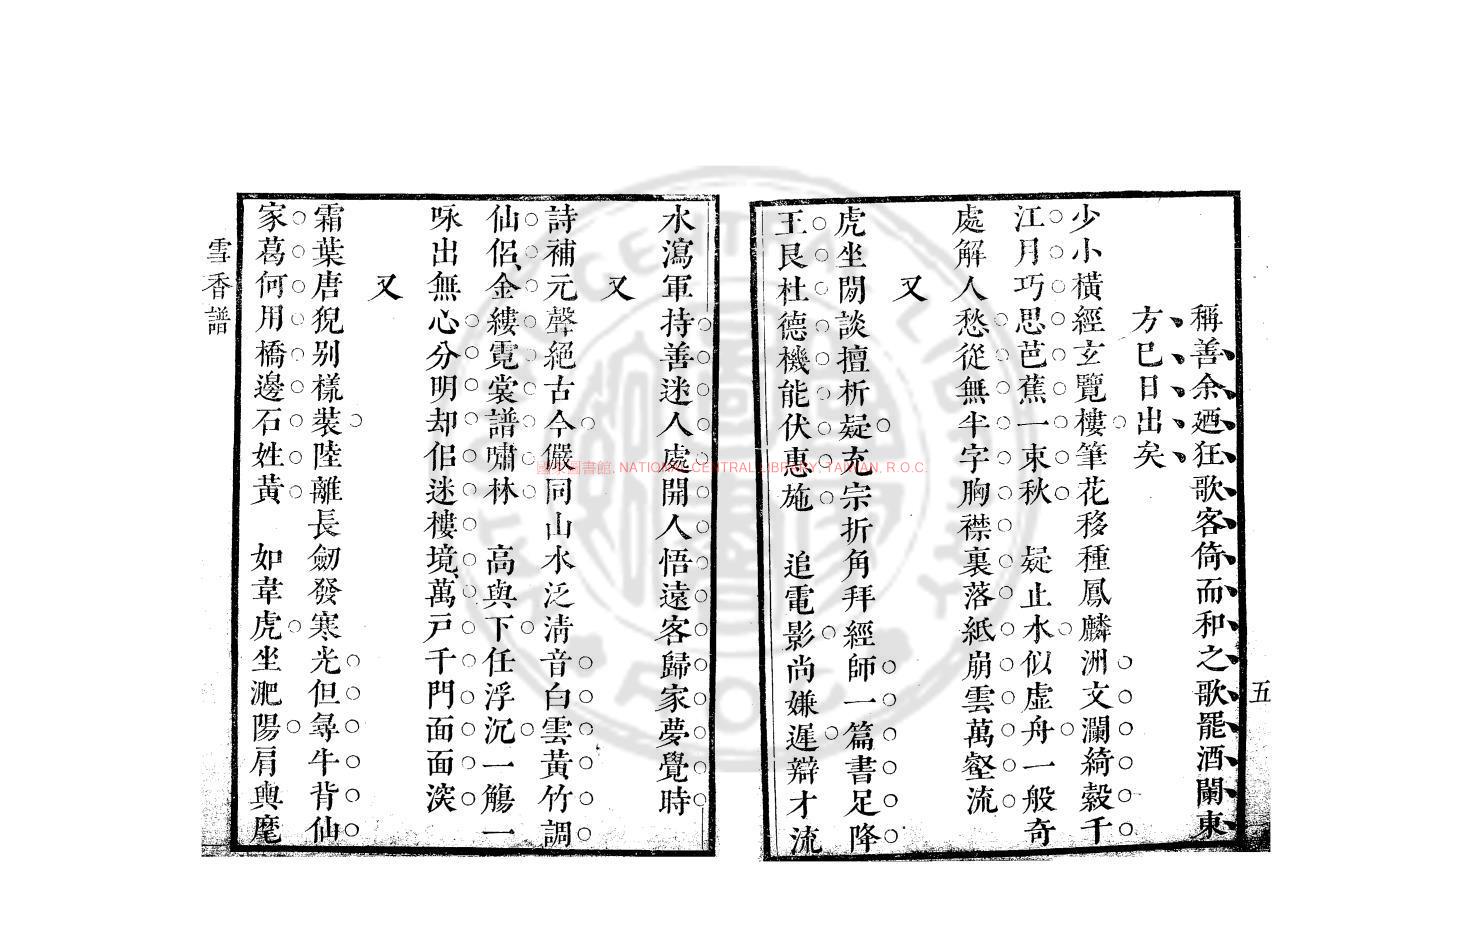 稱善余廼狂歌客倚而和之歌罷酒闌東
方已日出矣
少小橫經玄覽樓筆花移種鳳麟洲文瀾綺縠千
江月巧思芭蕉一束秋 疑止水似虛舟一般奇
處解人愁從無半字胸襟裏落紙崩雲萬壑流
又
虎坐閒談擅析疑充宗折角拜經師一篇書足降
王艮杜德機能伏惠施 追電影尚嫌遲辯才流
水瀉軍持善迷人處開人悟遠客歸家夢覺時
又
詩補元聲絕古今儼同山水泛清音白雲黃竹調
仙侶金縷霓裳譜嘯林 高與下任浮沉一觴一
咏出無心分明却佀迷樓境萬戸千門面面深
又
霜葉唐猊别樣裝陸離長劒發寒光但尋牛背仙
家葛何用橋邊石姓黃 如韋虎坐淝陽肩輿麾
雪香譜
五
國家圖書館, NATIONAL CENTRAL LIBRARY, TAIWAN, R.O.C.